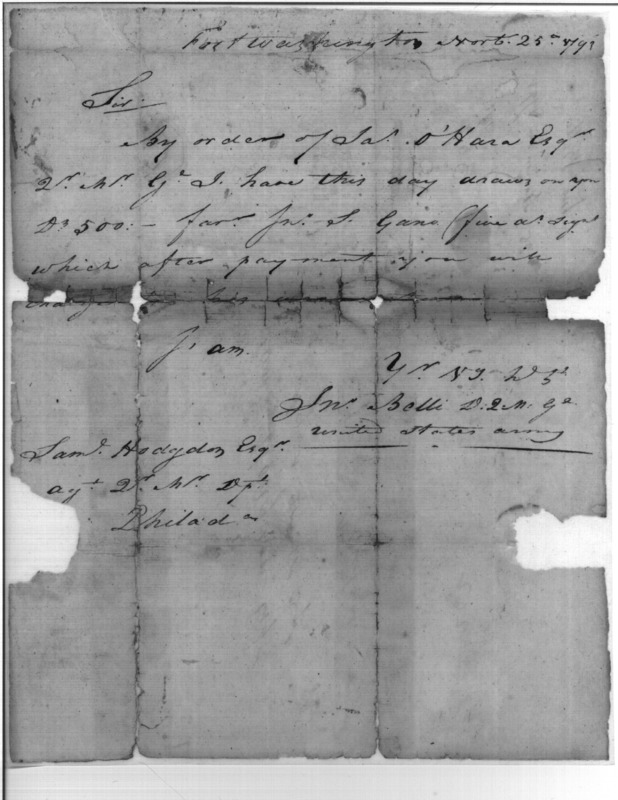 Fort Washington Novb. 25th 1792
Sir.
By order of Jas. O'Hara Esqr
Qr. Mr. Gl. I have this day drawn on you
Ds 500:- favr. Jno. S. Gano (five at sight
which after payment you will
charge his
I am
Yr. St.
Jno. Belli D. Q. M. Gl.
United States army
Saml. Hodgdon Esqr.
agt. Qr. Mr. Dpt.
Philada